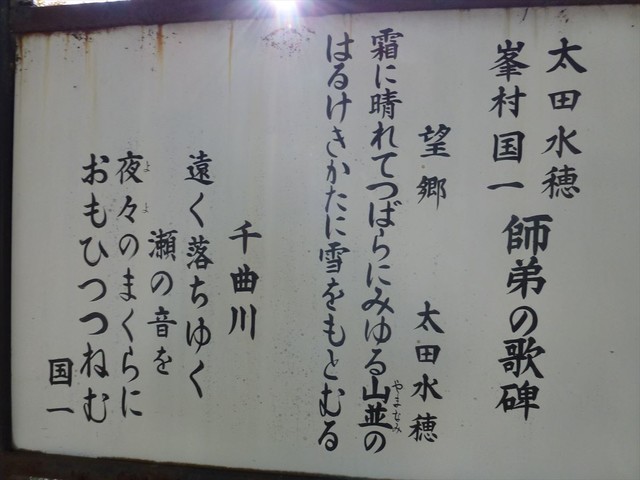 太田水穂
峯村国一 師弟の歌碑
望郷 太田水穂
霜に晴れてつばらにみゆる山並の
やまなみ
はるけきかたに雪をもとむる
千曲川
遠く落ちゆく
瀬の音を
夜々のまくらに
よよ
おもひつつねむ
国一